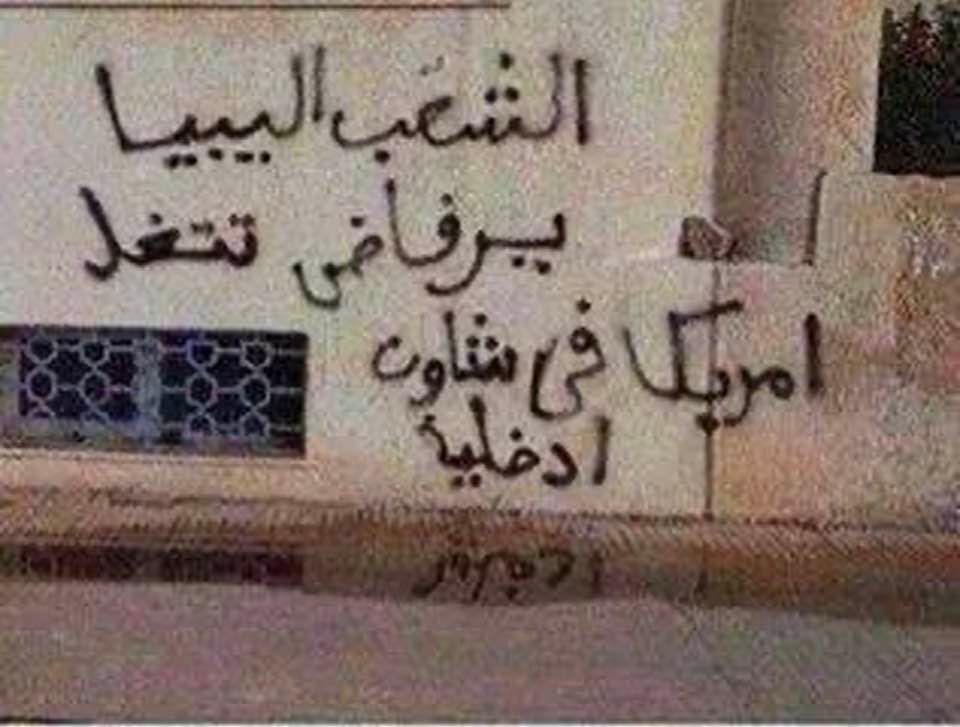 الشعب اليبيا
يرفاض تتخل
امريكا في شاون
ادخلية